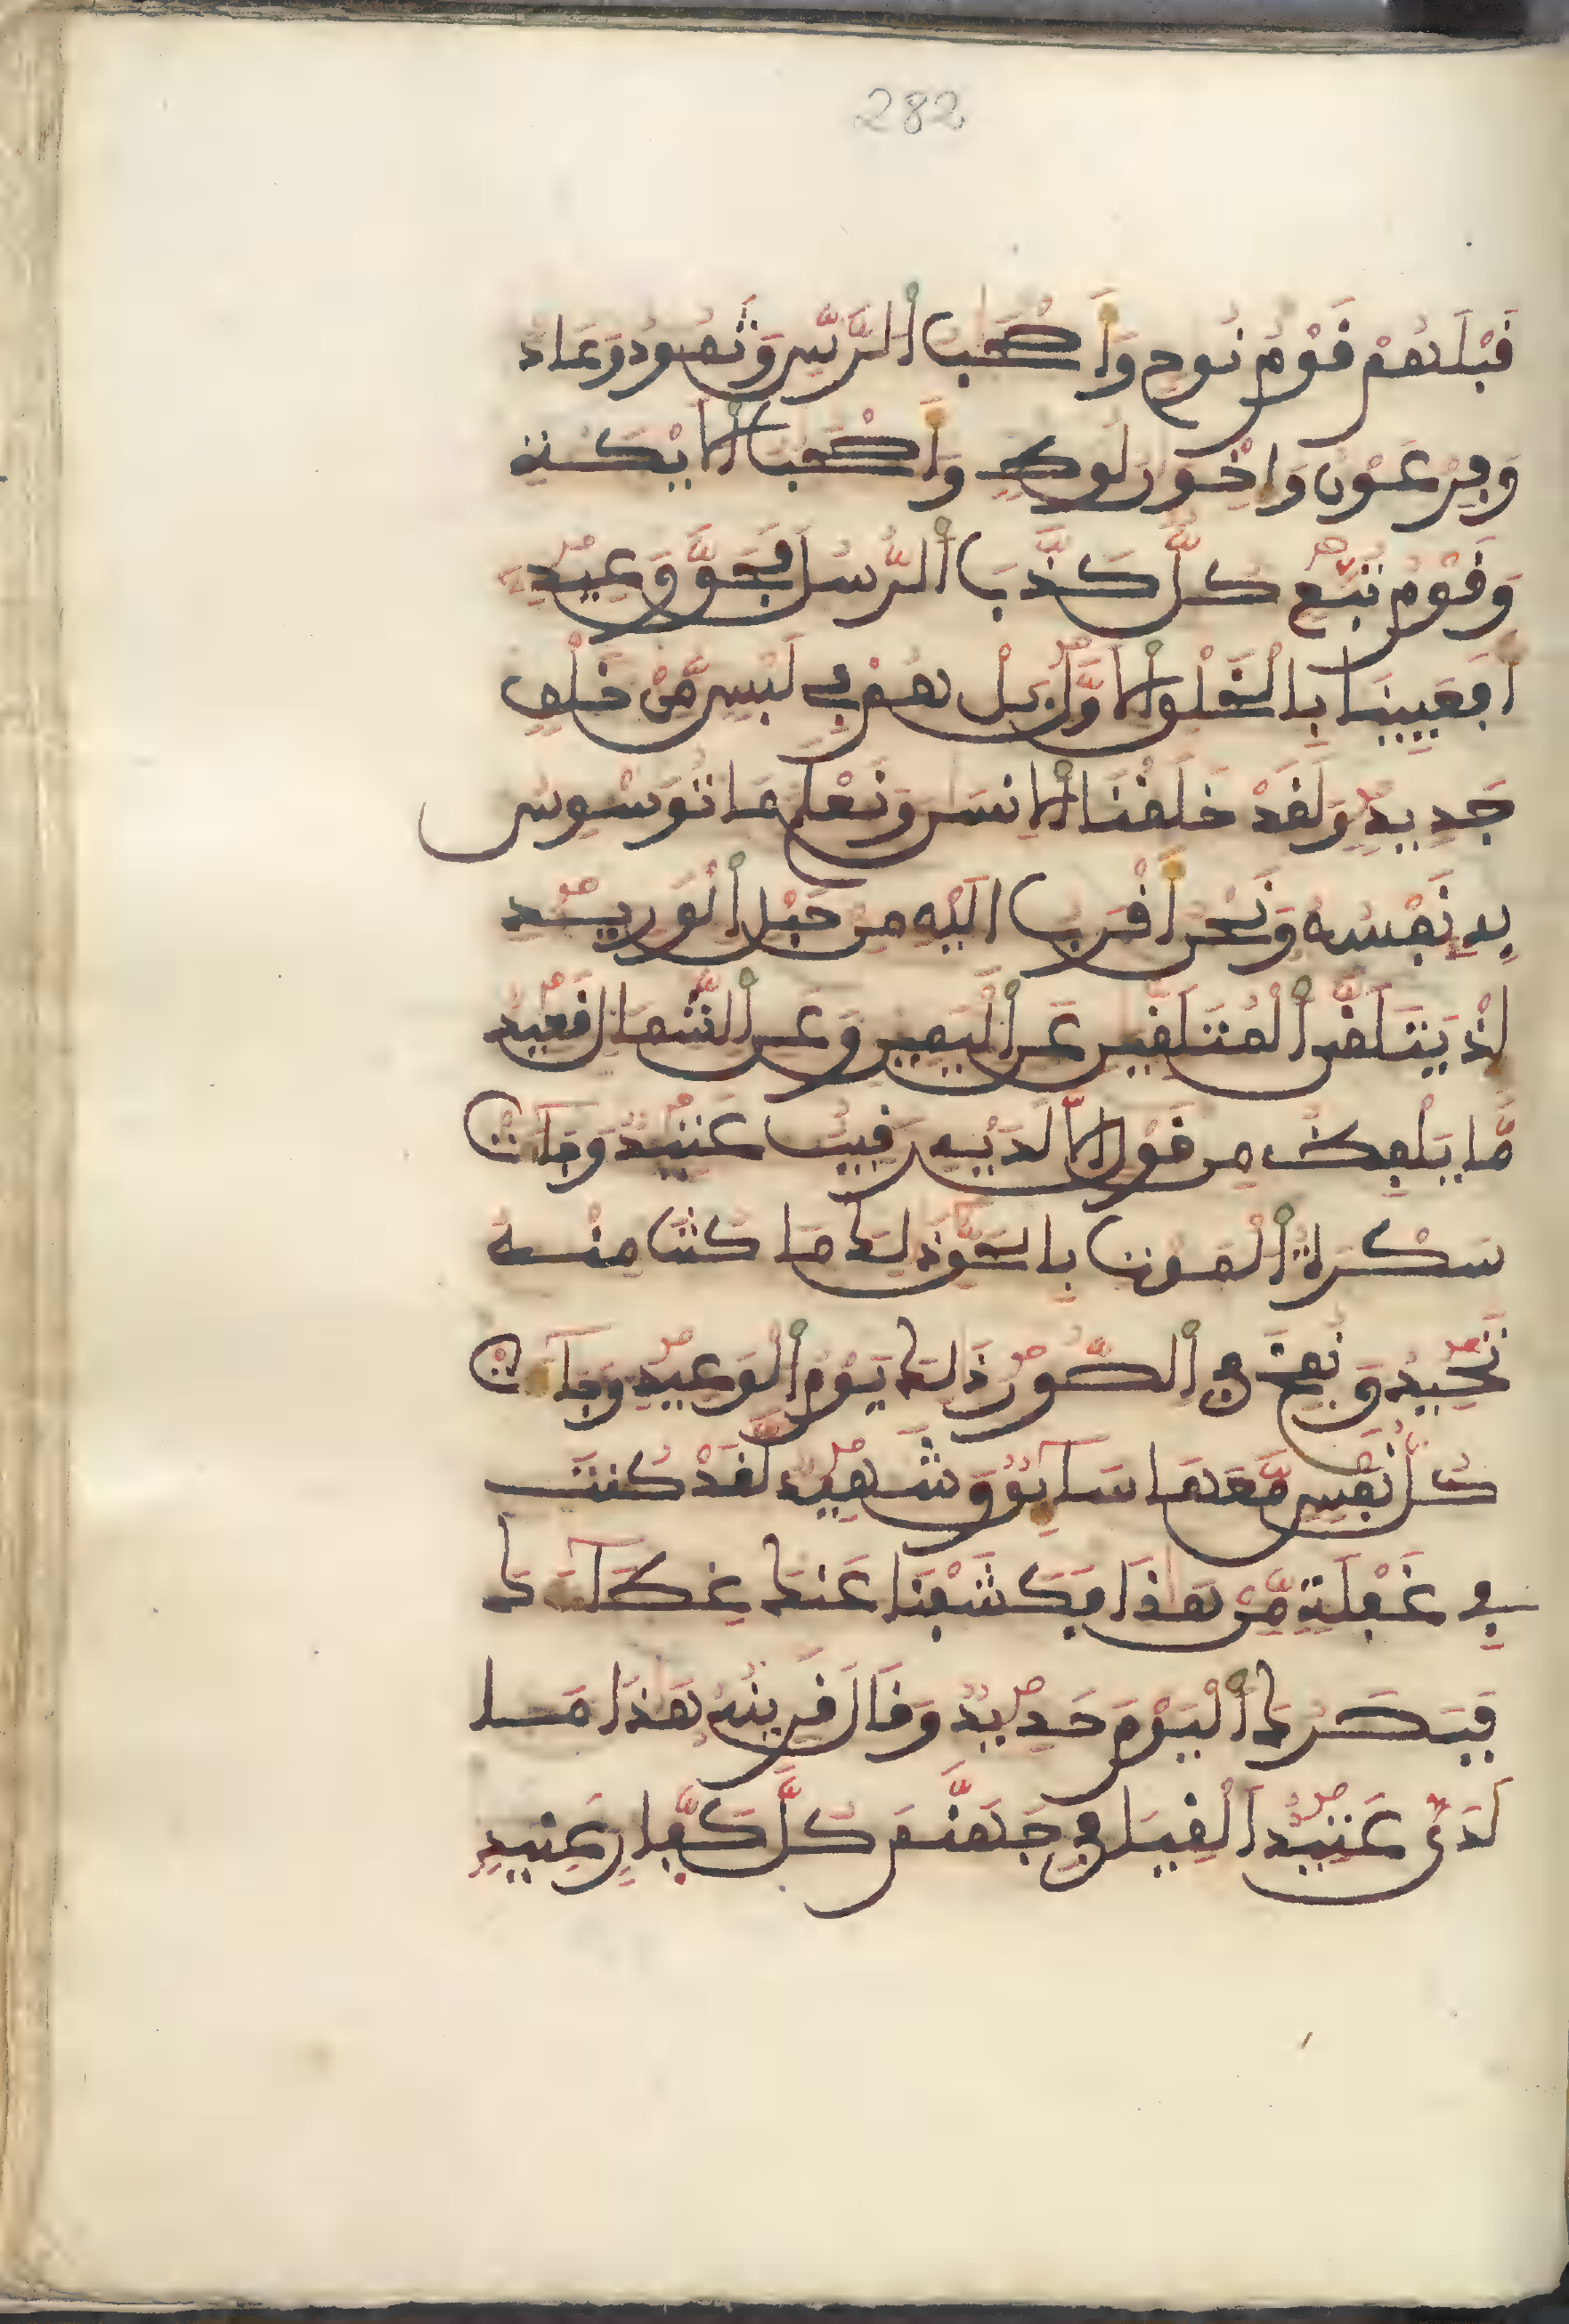 282
قَبْلَهُمْ قَوْمُ نُوحٍ وَأَصْحَٰبُ ٱلرَّسِّ وَثَمُودُ وَعَادٌ
وَفِرْعَوْنُ وَإِخْوَٰنُ لُوطٍ وَأَصْحَٰبُ ٱلْأَيْكَةِ
وَقَوْمُ تُبَّعٍ كُلٌّ كَذَّبَ ٱلرُّسُلَ فَحَقَّ وَعِيدِ
أَفَعَيِينَا بِالْخَلْقِ ٱلْأَوَّلِ بَلْ هُمْ فِي لَبْسٍ مِّنْ خَلْقٍ
جَدِيدٍ وَلَقَدْ خَلَقْنَا ٱلْإِنسَٰنَ وَنَعْلَمُ مَا تُوَسْوِسُ
بِهِ نَفْسُهُ وَنَحْنُ أَقْرَبُ إِلَيْهِ مِنْ حَبْلِ ٱلْوَرِيدِ
إِذْ يَتَلَقَّى ٱلْمُتَلَقِّيَٰنِ عَنِ ٱلْيَمِينِ وَعَنِ ٱلشِّمَالِ قَعِيدٌ
مَّا يَلْفِظُ مِن قَوْلٍ إِلَّا لَدَيْهِ رَقِيبٌ عَتِيدٌ وَجَآءَتْ
سَكْرَةُ ٱلْمَوْتِ بِالْحَقِّ ذَٰلِكَ مَا كُنتَ مِنْهُ
تَحِيدُ وَنُفِخَ فِي ٱلصُّورِ ذَٰلِكَ يَوْمُ ٱلْوَعِيدِ وَجَآءَتْ
كُلُّ نَفْسٍ مَّعَهَا سَآئِقٌ وَشَهِيدٌ لَّقَدْ كُنتَ
فِي غَفْلَةٍ مِّنْ هَٰذَا فَكَشَفْنَا عَنكَ غِطَآءَكَ
فَبَصَرُكَ ٱلْيَوْمَ حَدِيدٌ وَقَالَ قَرِينُهُ هَٰذَا مَا
لَدَيَّ عَتِيدٌ أَلْقِيَا فِي جَهَنَّمَ كُلَّ كَفَّارٍ عَنِيدٍ